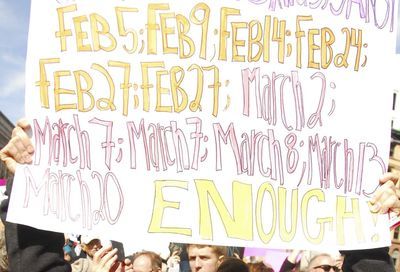 FEB 5; FEB 9; FEB 14; FEB 24;
FEB 27; FEB 27; March 2;
March 7; March 7; March 8; March 13
March 20 ENOUGH!